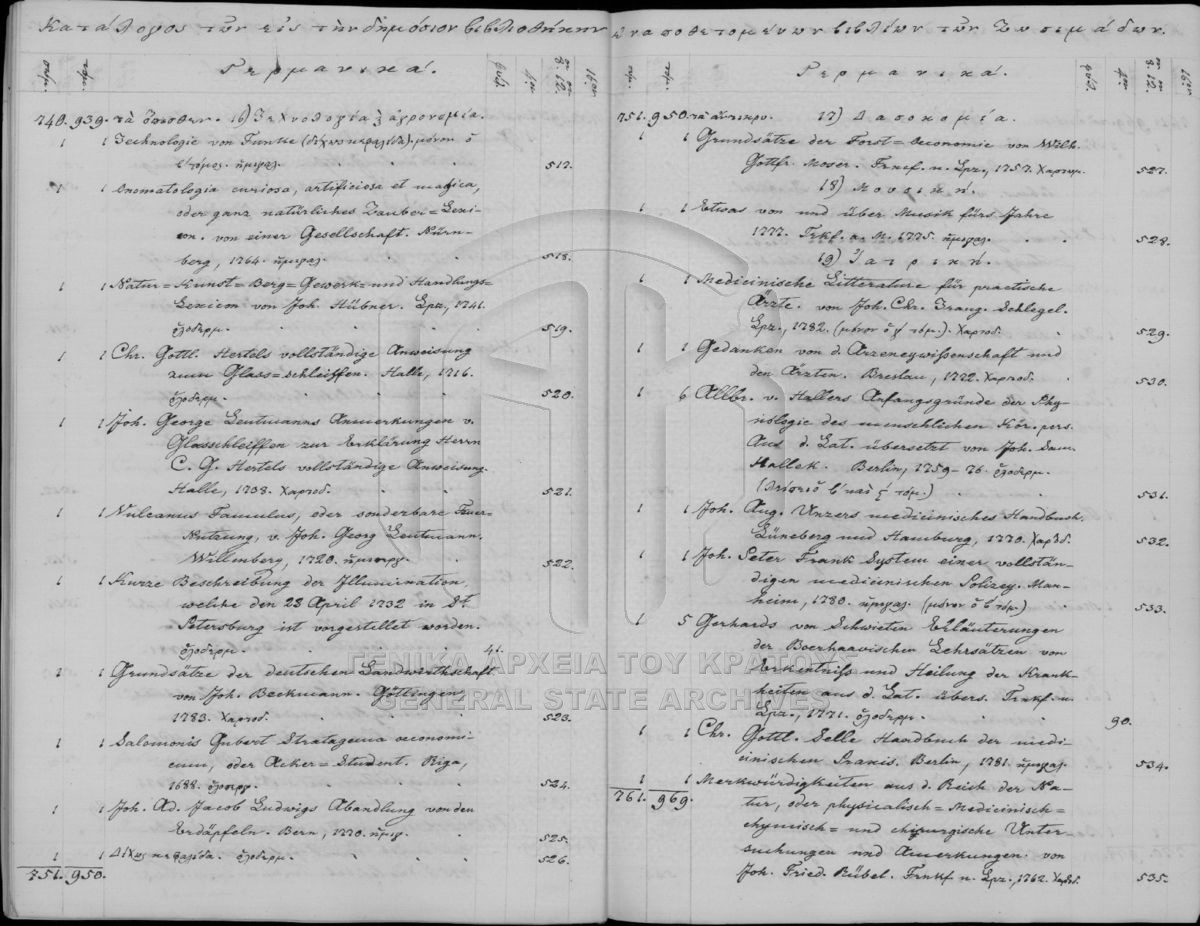 Κατάλογος τῶν εἰς τὴν δημόσιον βιβλιοθήκην ἐναποθετομένων βιβλίων τῶν Ζωσιμάδων.
Γερμανικά.
740. 939. τὰ ὄπισθεν. 16) Τεχνολογία & ἀγρονομία.
1 1 Technologie von Funke (δίχως κεφαλίδα) μόνον ὁ
τόμος. ἡμιγαλ. 517.
1 1 Onomatologia curiosa, artificiosa et magica,
oder ganz natürliches Zauber=Lexi-
con. von einer Gesellschaft. Nürn-
berg, 1764. ἡμιγαλ. 518.
1 1 Natur=Kunst=Berg=Gewerk=und Handlungs=
Lexicon von Joh. Hübner. Lpz., 1741.
ὁλοδερμ. 519.
1 1 Chr. Gottl. Hertels vollständige Anweisung
zum Glass=schleiffen. Halle, 1716.
ὁλοδερμ. 520.
1 1 Joh. George Leutmanns Anmerkungen v.
Glasschleiffen zur Erklärung Herrn
C. G. Hertels vollständige Anweisung.
Halle, 1738. Χαρτοδ. 521.
1 1 Vulcanus Famulus, oder sonderbare Feuer-
Nutzung, v. Joh. Georg Leutmann.
Wittemberg, 1720. 522.
1 1 Kurze Beschreibung der Illumination,
welche den 28 April 1732 in St.
Petersburg ist vorgestellet worden.
ὁλοδερμ. 41.
1 1 Grundsätze der deutschen Landwirthschaft
von Joh. Beckmann. Göttingen,
1783. Χαρτοδ. 523.
1 1 Salomonis Gubert Stratagema oeconomi-
cum, oder Acker=Student. Riga,
1688. 524.
1 1 Joh. Ad. Jacob Ludwigs Abandlung von den
Erdäpfeln. Bern, 1770. 525.
1 1 Δίχως κεφαλίδα. ὁλοδερμ. 526.
751. 950.
Γερμανικά.
751. 950. τὰ ἄντικρυ. 17) Δασοκομία.
1 1 Grundsätze der Forst=Oeconomie von Wilh.
Gottfr. Moser. Frkf. u. Lpz., 1757. Χαρτογ. 527.
18) Μουσική.
1 1 Etwas von und über Musik fürs Jahre
1777. Frkf. a. M. 1775. ἡμιγαλ. 528.
19) Ἰατρική.
1 1 Medicinische Litterature für practische
Ärzte. von Joh. Chr. Traug. Schlegel.
Lpz., 1782. (μόνον ὁ τόμ.). Χαρτοδ. 529.
1 1 Gedanken von d. Arzeneywissenschaft und
den Ärzten. Breslau, 1772. Χαρτοδ. 530.
1 6 Allbr. v. Hallers Anfangsgründe der Phy-
siologie des menschlichen Kör. pers.
Aus d. Lat. übersetzt von Joh. Sam.
Hallek. Berlin, 1759-76. ὁλοδερμ.
(Λείπει ὁ καὶ τόμ.) 531.
1 1 Joh. Aug. Unzers medicinisches Handbuch.
Lüneberg und Hamburg, 1770. Χαρτδ. 532.
1 1 Joh. Peter Frank System einer vollstän-
digen medicinischen Polizey. Man-
heim, 1780. ἡμιγαλ. (μόνον ὁ τόμ.) 533.
1 5 Gerhards von Schwieten Erläuterungen
der Boerhaavischen Lehrsätzen von
Erkentniss und Heilung der Krank-
heiten aus d. Lat. übers. Frnkf. u.
Lpz., 1771. ὁλοδερμ. 90.
1 1 Chr. Gottl. Selle Handbuch der medi-
cinischen Praxis. Berlin, 1781. ἡμιγαλ. 534.
1 1 Merkwürdigkeiten aus d. Reich der Na-
761. 969. tur, oder physicalisch=Medicinisch=
chymisch=und chirurgische Unter-
suchungen und Anmerkungen von
Joh. Fried. Rübel. Frnkf. u. Lpz., 1762. Χαρτοδ. 535.
ΓΕΝΙΚΑ ΑΡΧΕΙΑ ΤΟΥ ΚΡΑΤΟΥΣ
GENERAL STATE ARCHIVES